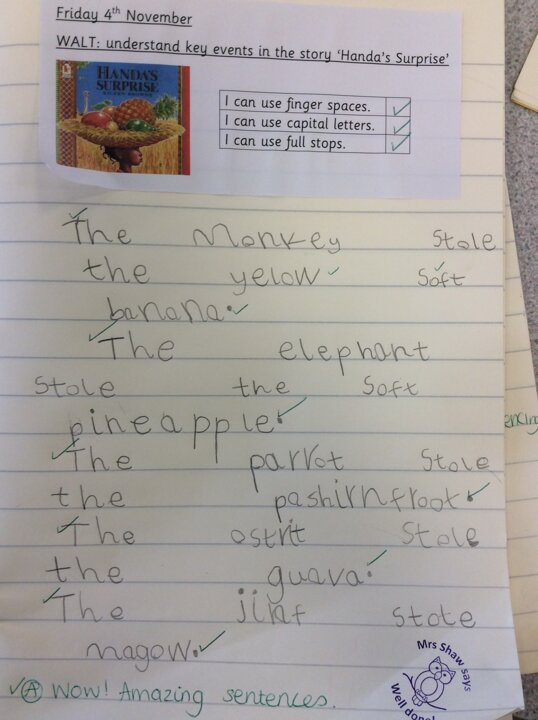 Friday 4th November
WALT: understand key events in the story ‘Handa’s Surprise’
HANDA'S
SURPRISE
I can use finger spaces.
I can use capital letters.
I can use full stops.
The Monkey Stole
the yelow Soft
banana.
The elephant
Stole the Soft
pineapple.
The parrot Stole
the pashirnfroot.
The ostrit Stole
the guava.
The jiraf stote
magow.
A Wow! Amazing sentences.
Mrs Shaw says
Well done!